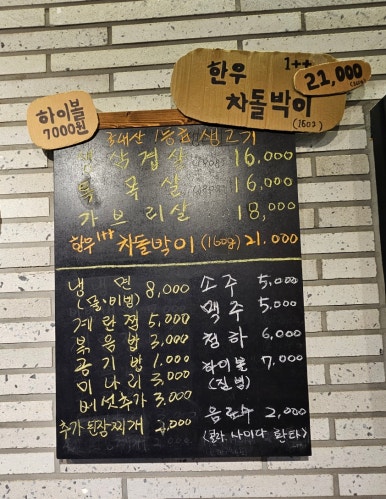 하이볼
7000원
한우 1++
차돌박이
(160g)
21,000
국내산 1등급 생고기
삼겹살 16,000
목살 16,000
가브리살 18,000
한우 1++ 차돌박이 (160g) 21,000
냉면 8,000
(물·비빔)
계란찜 5,000
볶음밥 3,000
공기밥 1,000
미나리 3,000
버섯추가 3,000
추가 된장찌개 2,000
소주 5,000
맥주 5,000
청하 6,000
하이볼 7,000
(짐빔)
음료수 2,000
(콜라 사이다 환타)